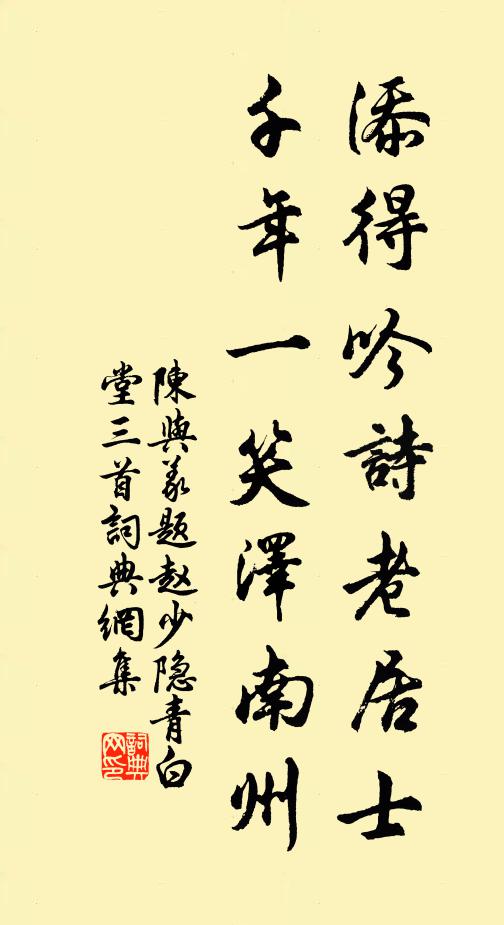 添得吟詩老居士
千年一笑澤南州
陳與義題赵少隐青白
堂三首詞典網集
詞典
网印